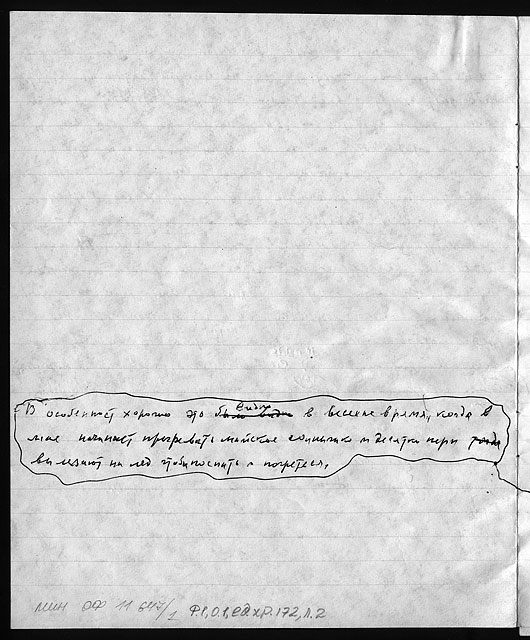 видно
В особенност хорошо это было видно в весенне время, когда в
мае начинает прогревать майское солнышко и десятки нерп
вылезают на лед чтобы поспать и погретсся.
МИН ОФ 11 647/1 Ф.1, О.1, ед.хр.172, л.2